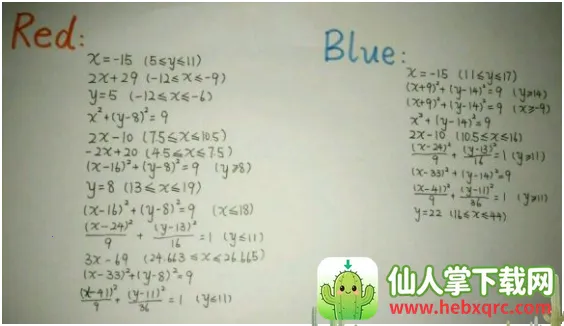 Red:
x=-15 (5≤y≤11)
2x+29 (-12≤x≤-9)
y=5 (-12≤x≤-6)
x²+(y-8)²=9
2x-10 (7.5≤x≤10.5)
-2x+20 (4.5≤x≤7.5)
(x-16)²+(y-8)²=9 (y≥8)
y=8 (13≤x≤19)
(x-16)²+(y-8)²=9 (x≤18)
(x-24)²/9 + (y-13)²/16 =1 (y≤11)
3x-69 (24.663≤x≤26.665)
(x-33)²+(y-8)²=9
(x-41)²/9 + (y-11)²/36 =1 (y≤11)
Blue:
x=-15 (11≤y≤17)
(x+9)²+(y-14)²=9 (y≥14)
(x+9)²+(y-14)²=9 (x≥-9)
x²+(y-14)²=9
2x-10 (10.5≤x≤16)
(x-24)²/9 + (y-13)²/16 =1 (y≥11)
(x-33)²+(y-14)²=9
(x-41)²/9 + (y-11)²/36 =1 (y≥11)
y=22 (16≤x≤44)
仙人掌下载网
www.hebxqrc.com